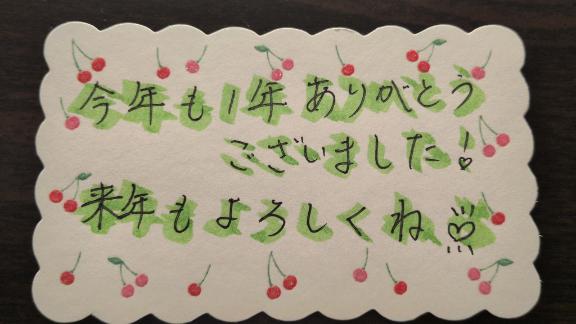 今年も1年ありがとう
ございました!
来年もよろしくね